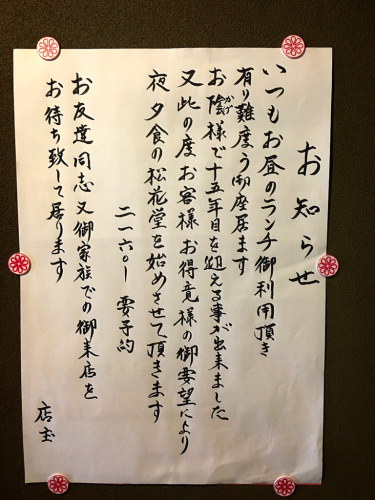 お知らせ
いつもお昼のランチ御利用頂き
有り難度う御座居ます
お陰様で十五年目を迎える事が出来ました
かげ
又此の度お客様お得意様の御要望により
夜夕食の松花堂を始めさせて頂きます
二一六〇ー要予約
お友達同志又御家族での御来店を
お待ち致して居ります
店主